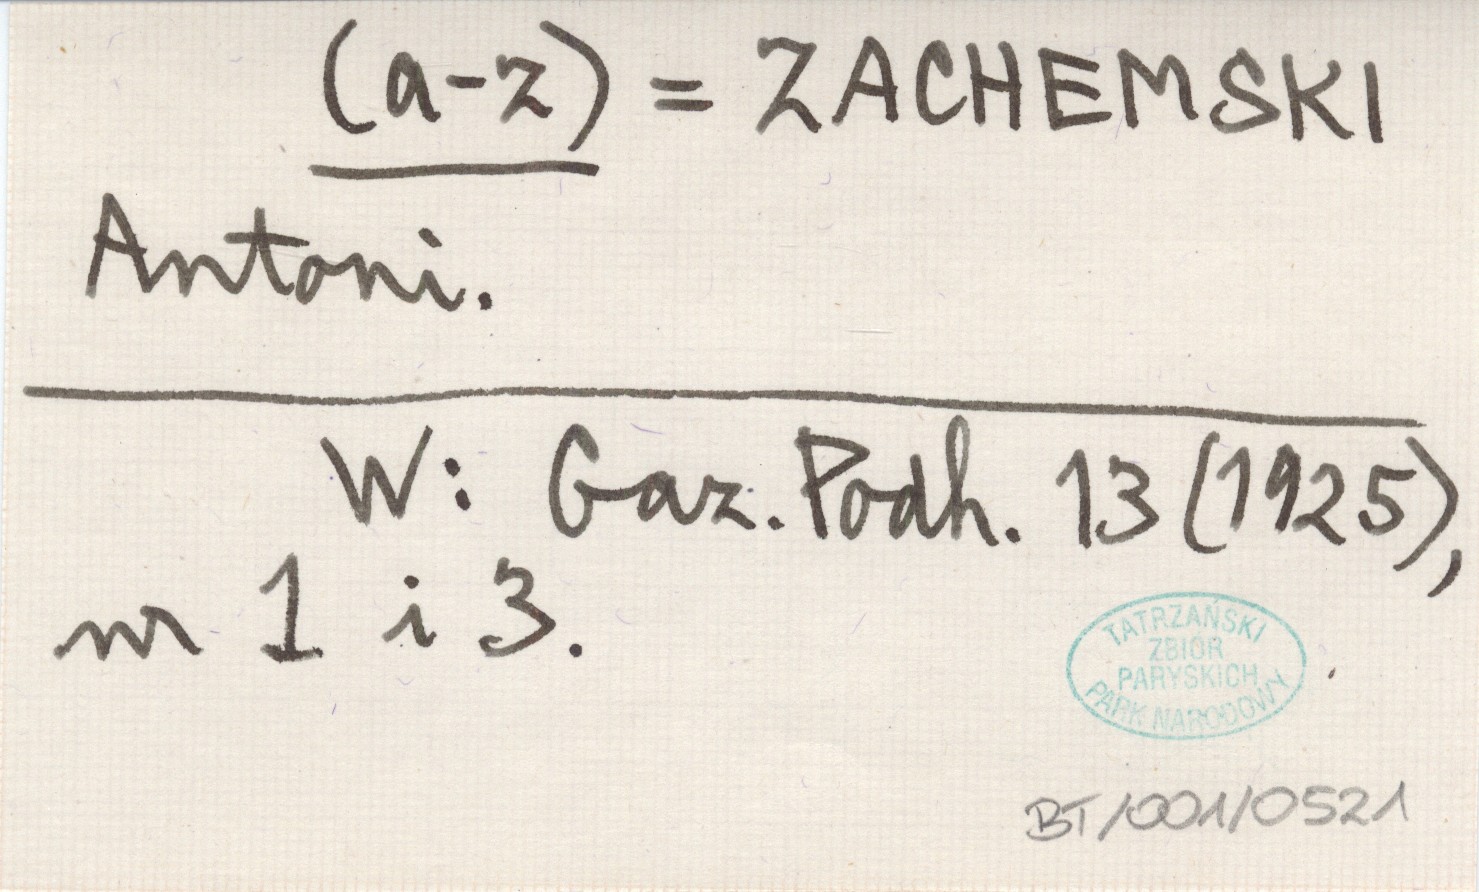 (a-z) = ZACHEMSKI
Antoni.
W: Gaz. Podh. 13 (1925),
nr 1 i 3.
TATRZAŃSKI
ZBIÓR
PARYSKICH
PARK NARODOWY
BT/001/0521